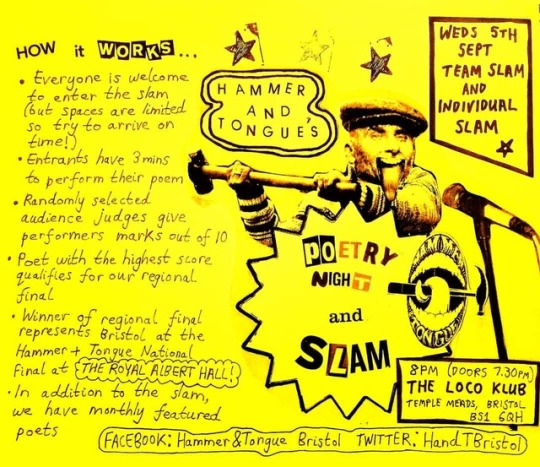 HOW it WORKS...
• Everyone is welcome
to enter the slam
(but spaces are limited
so try to arrive on
time!)
• Entrants have 3 mins
to perform their poem
• Randomly selected
audience judges give
performers marks out of 10
• Poet with the highest score
qualifies for our regional
final
• Winner of regional final
represents Bristol at the
Hammer + Tongue National
Final at THE ROYAL ALBERT HALL!
• In addition to the slam,
we have monthly featured
poets
HAMMER
AND
TONGUE'S
WEDS 5TH
SEPT
TEAM SLAM
AND
INDIVIDUAL
SLAM
POETRY
NIGHT
and
SLAM
HAMMER
TONGUE
8PM (DOORS 7.30PM)
THE LOCO KLUB
TEMPLE MEADS, BRISTOL
BS1 6QH
FACEBOOK: Hammer & Tongue Bristol TWITTER: HandTBristol